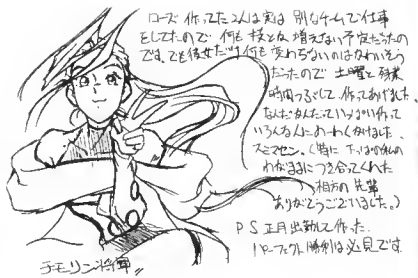 ローズ 作ってた2人は実は 別なチームで仕事
をしてたので 何も 技とか 増えない予定だったの
です。でも彼女だけ何も変わらないのはかわいそう
だったので 土曜と 残業
時間つぶして 作ってあげました。
なんだかんだいっていっぱい作って
いろんな人にめーわくかけました。
スミマセン。(特に 私の
わがままにつき合ってくれた
相方の 先輩
ありがとうございました。)
PS 正月出勤して作った
パーフェクト勝利は必見です
チモリン将軍